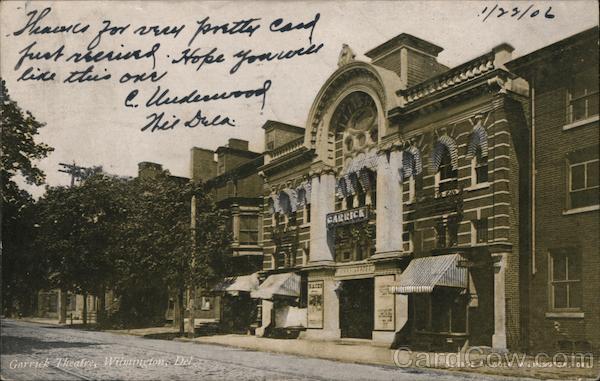 Thanks for very pretty card
just received. Hope you will
like this one
C. Underwood
Wil Dela.
1/23/06
GARRICK
Garrick Theatre, Wilmington, Del.
CardCow.com